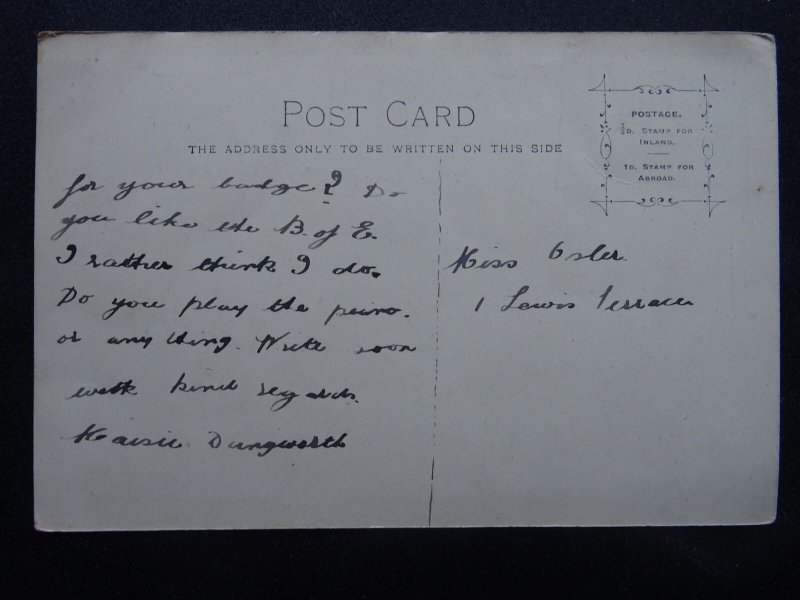 POST CARD
THE ADDRESS ONLY TO BE WRITTEN ON THIS SIDE
POSTAGE.
½D. STAMP FOR
INLAND.
1D. STAMP FOR
ABROAD.
for your badge? Do
you like the B. of E.
I rather think I do.
Do you play the piano.
or any thing. Write soon
with kind regards.
Dungworth
Miss Osler.
1 Lewis Terrace